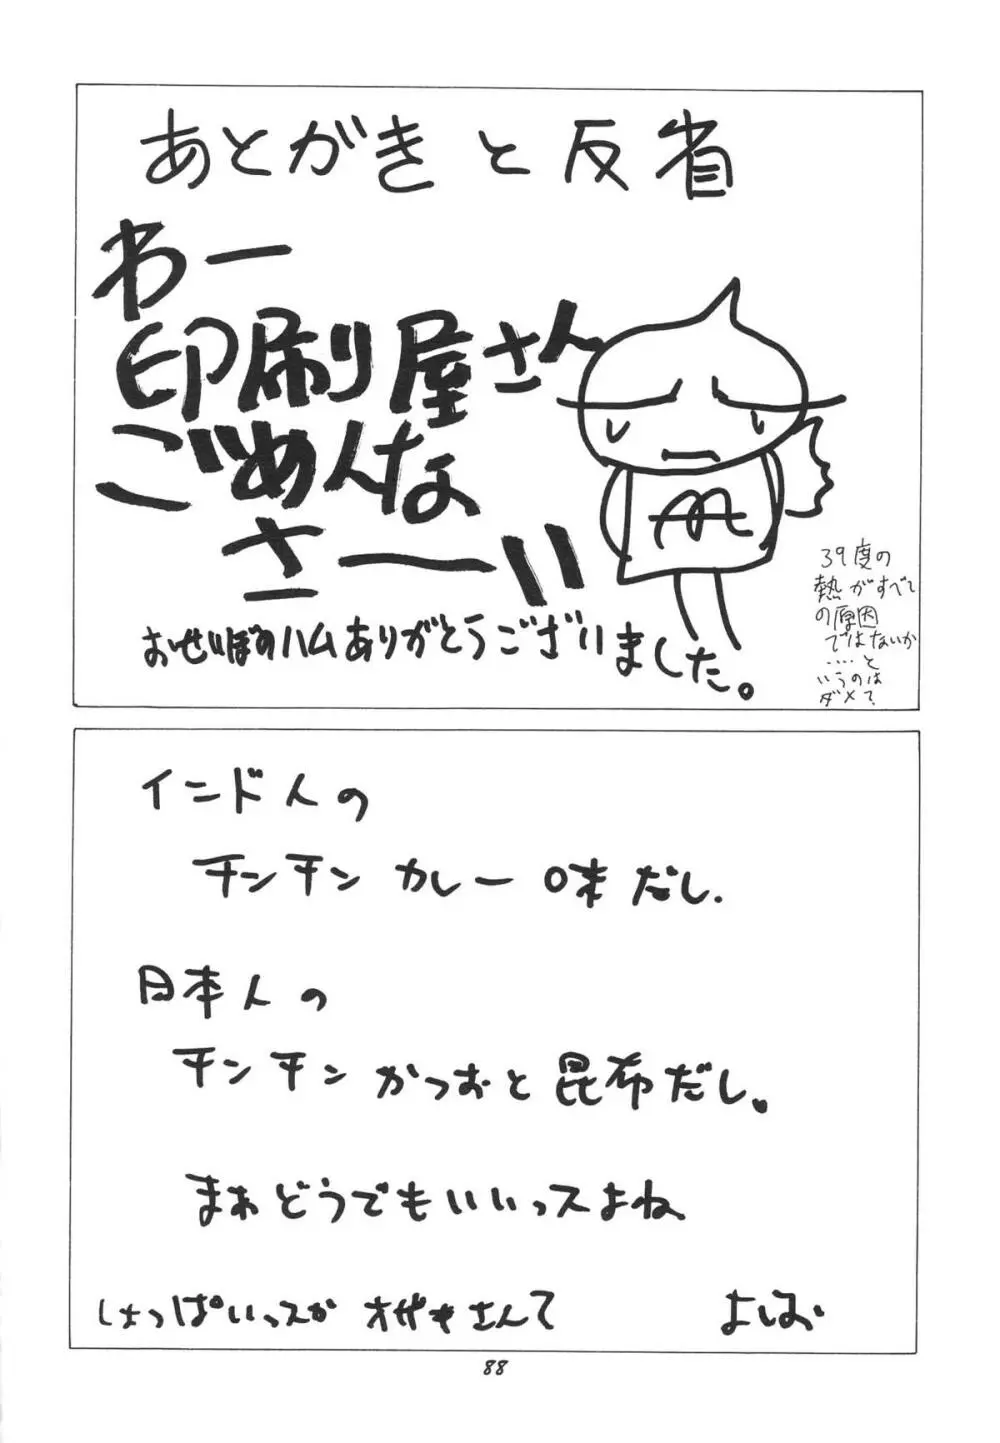 あとがきと反省
わー
印刷屋さん
ごめんな
さ〜い
おせいぼのハムありがとうございました。
39度の
熱がすべて
の原因
ではないか
‥‥と
いうのは
ダメ?
インド人の
チンチンカレー味だし.
日本人の
チンチンかつおと昆布だし。
まあどうでもいいっスよね
しょっぱいっスか オザキさんて
よしお
88